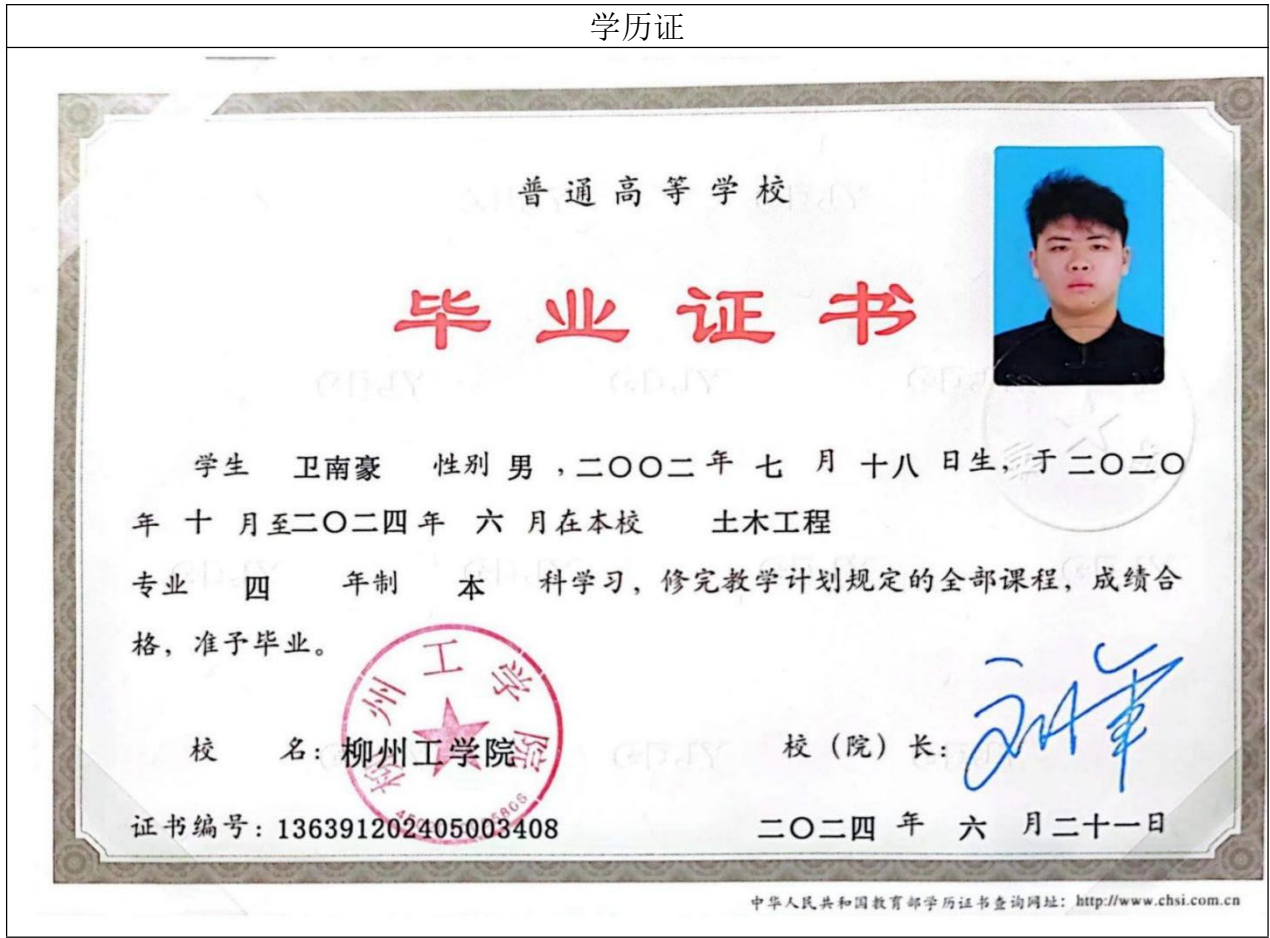 学历证
普通高等学校
毕业证书
学生 卫南豪 性别 男，二〇〇二年 七 月 十八 日生，于二〇二〇
年 十 月至二〇二四年 六 月在本校 土木工程
专业 四 年制 本 科学习，修完教学计划规定的全部课程，成绩合
格，准予毕业。
柳州工学院
校 名：柳州工学院 校（院）长：
证书编号：136391202405003408 二〇二四 年 六 月二十一日
中华人民共和国教育部学历证书查询网址：http://www.chsi.com.cn